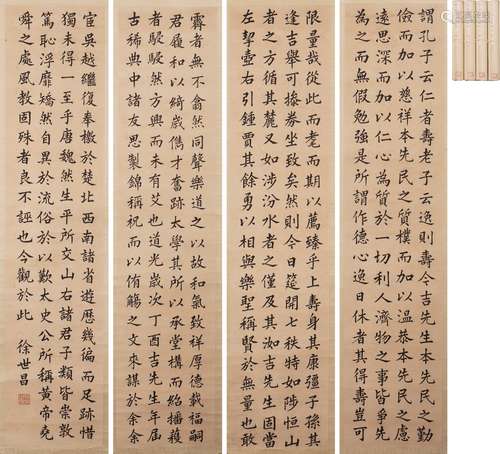 謂孔子云仁者壽老子云逸則壽今吉先生本先民之勤
儉而加以慈祥本先民之質樸而加以溫恭本先民之慮
遠思深而加以仁心為質於一切利人濟物之事皆爭先
為之而無假勉強是所謂作德心逸日休者其得壽豈可
限量哉從此而耄而期以薦臻乎上壽身其康彊子孫其
逢吉舉可摻券坐致矣然則今日筵開七秩特如陟恒山
者之方循其麓又如涉汾水者之僅及其汭吉先生固當
左挈壺右引鍾賈其餘勇以相與樂聖稱賢於無量也歟
霽者無不翕然同聲樂道之以故和氣致祥厚德載福嗣
君履和以綺歲儁才奮跡太學其所以承堂構而紹播穫
者駸駸然方興而未有艾也道光歲次丁酉吉先生年屆
古稀典中諸友思製錦稱祝而以侑觴之文來謀於余余
宦吳越繼復奉檄於楚北西南諸省遊歷幾徧而足跡惜
獨未得一至乎唐魏然生平所交山右諸君子類皆崇敦
篤恥浮靡矯然自異於流俗於以歎太史公所稱黃帝堯
舜之處風教固殊者良不誣也今觀於此 徐世昌